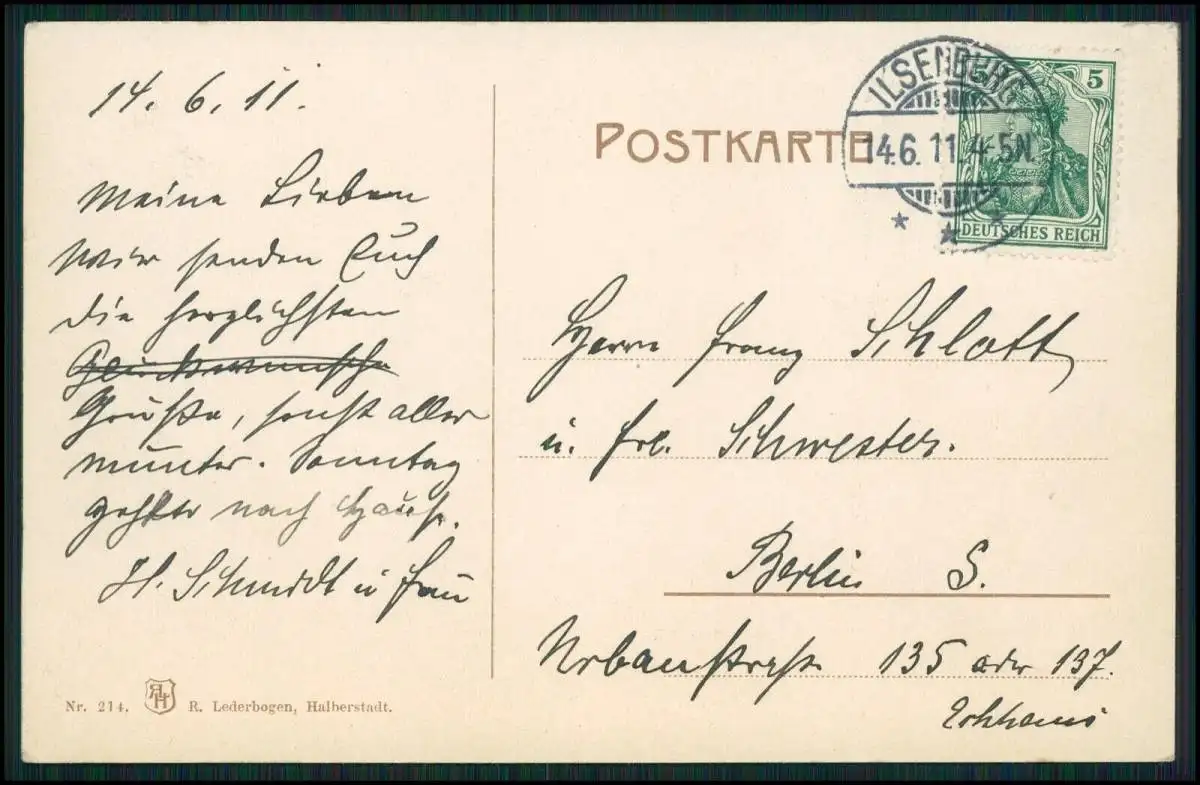 14. 6. 11.
Meine Lieben
Wir senden Euch
die herzlichsten
Glückwünsche
Grüße, sonst alles
munter. Sonntag
geht's nach Haus.
H. Schmidt u Frau
Nr. 214.
RL
H
R. Lederbogen, Halberstadt.
POSTKARTE
ILSENBURG
14.6.11.4-5N.
5
DEUTSCHES REICH
Herrn Franz Schlott
u. Frl. Schwester.
Berlin S.
Urbanstraße 135 oder 137.
Eckhaus